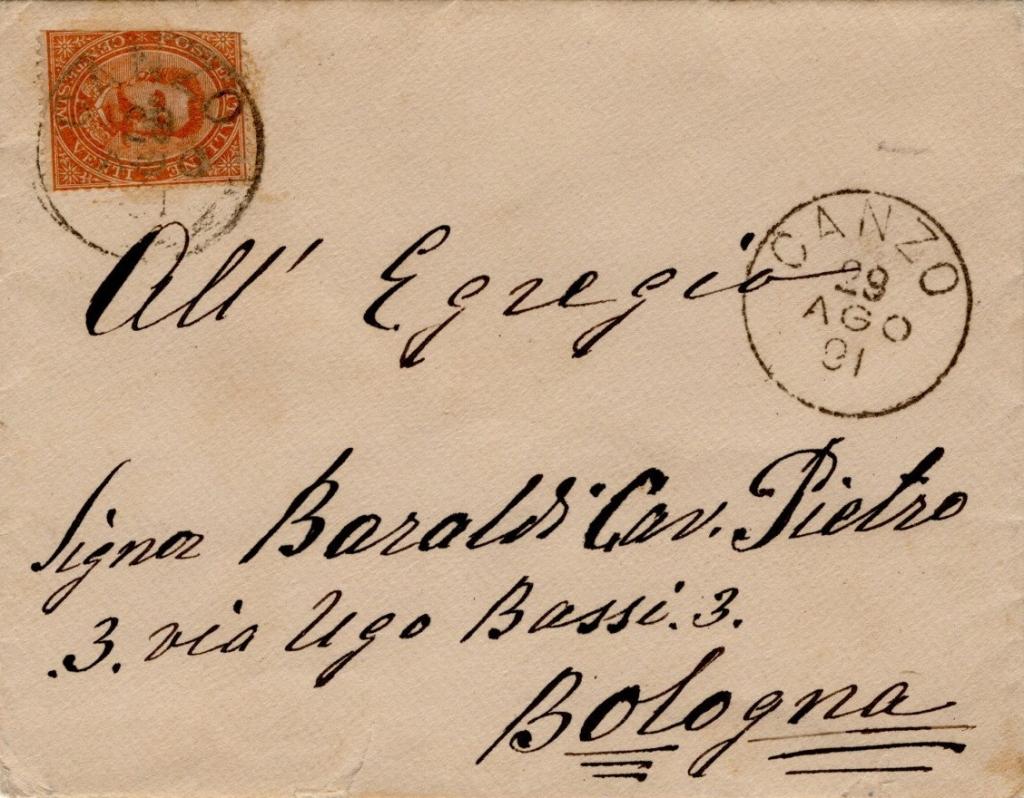 POSTE ITALIANE
CENTESIMI VENTI
CANZO
29
AGO
91
All' Egregio
Signor Baraldi Cav. Pietro
.3. via Ugo Bassi. 3.
Bologna